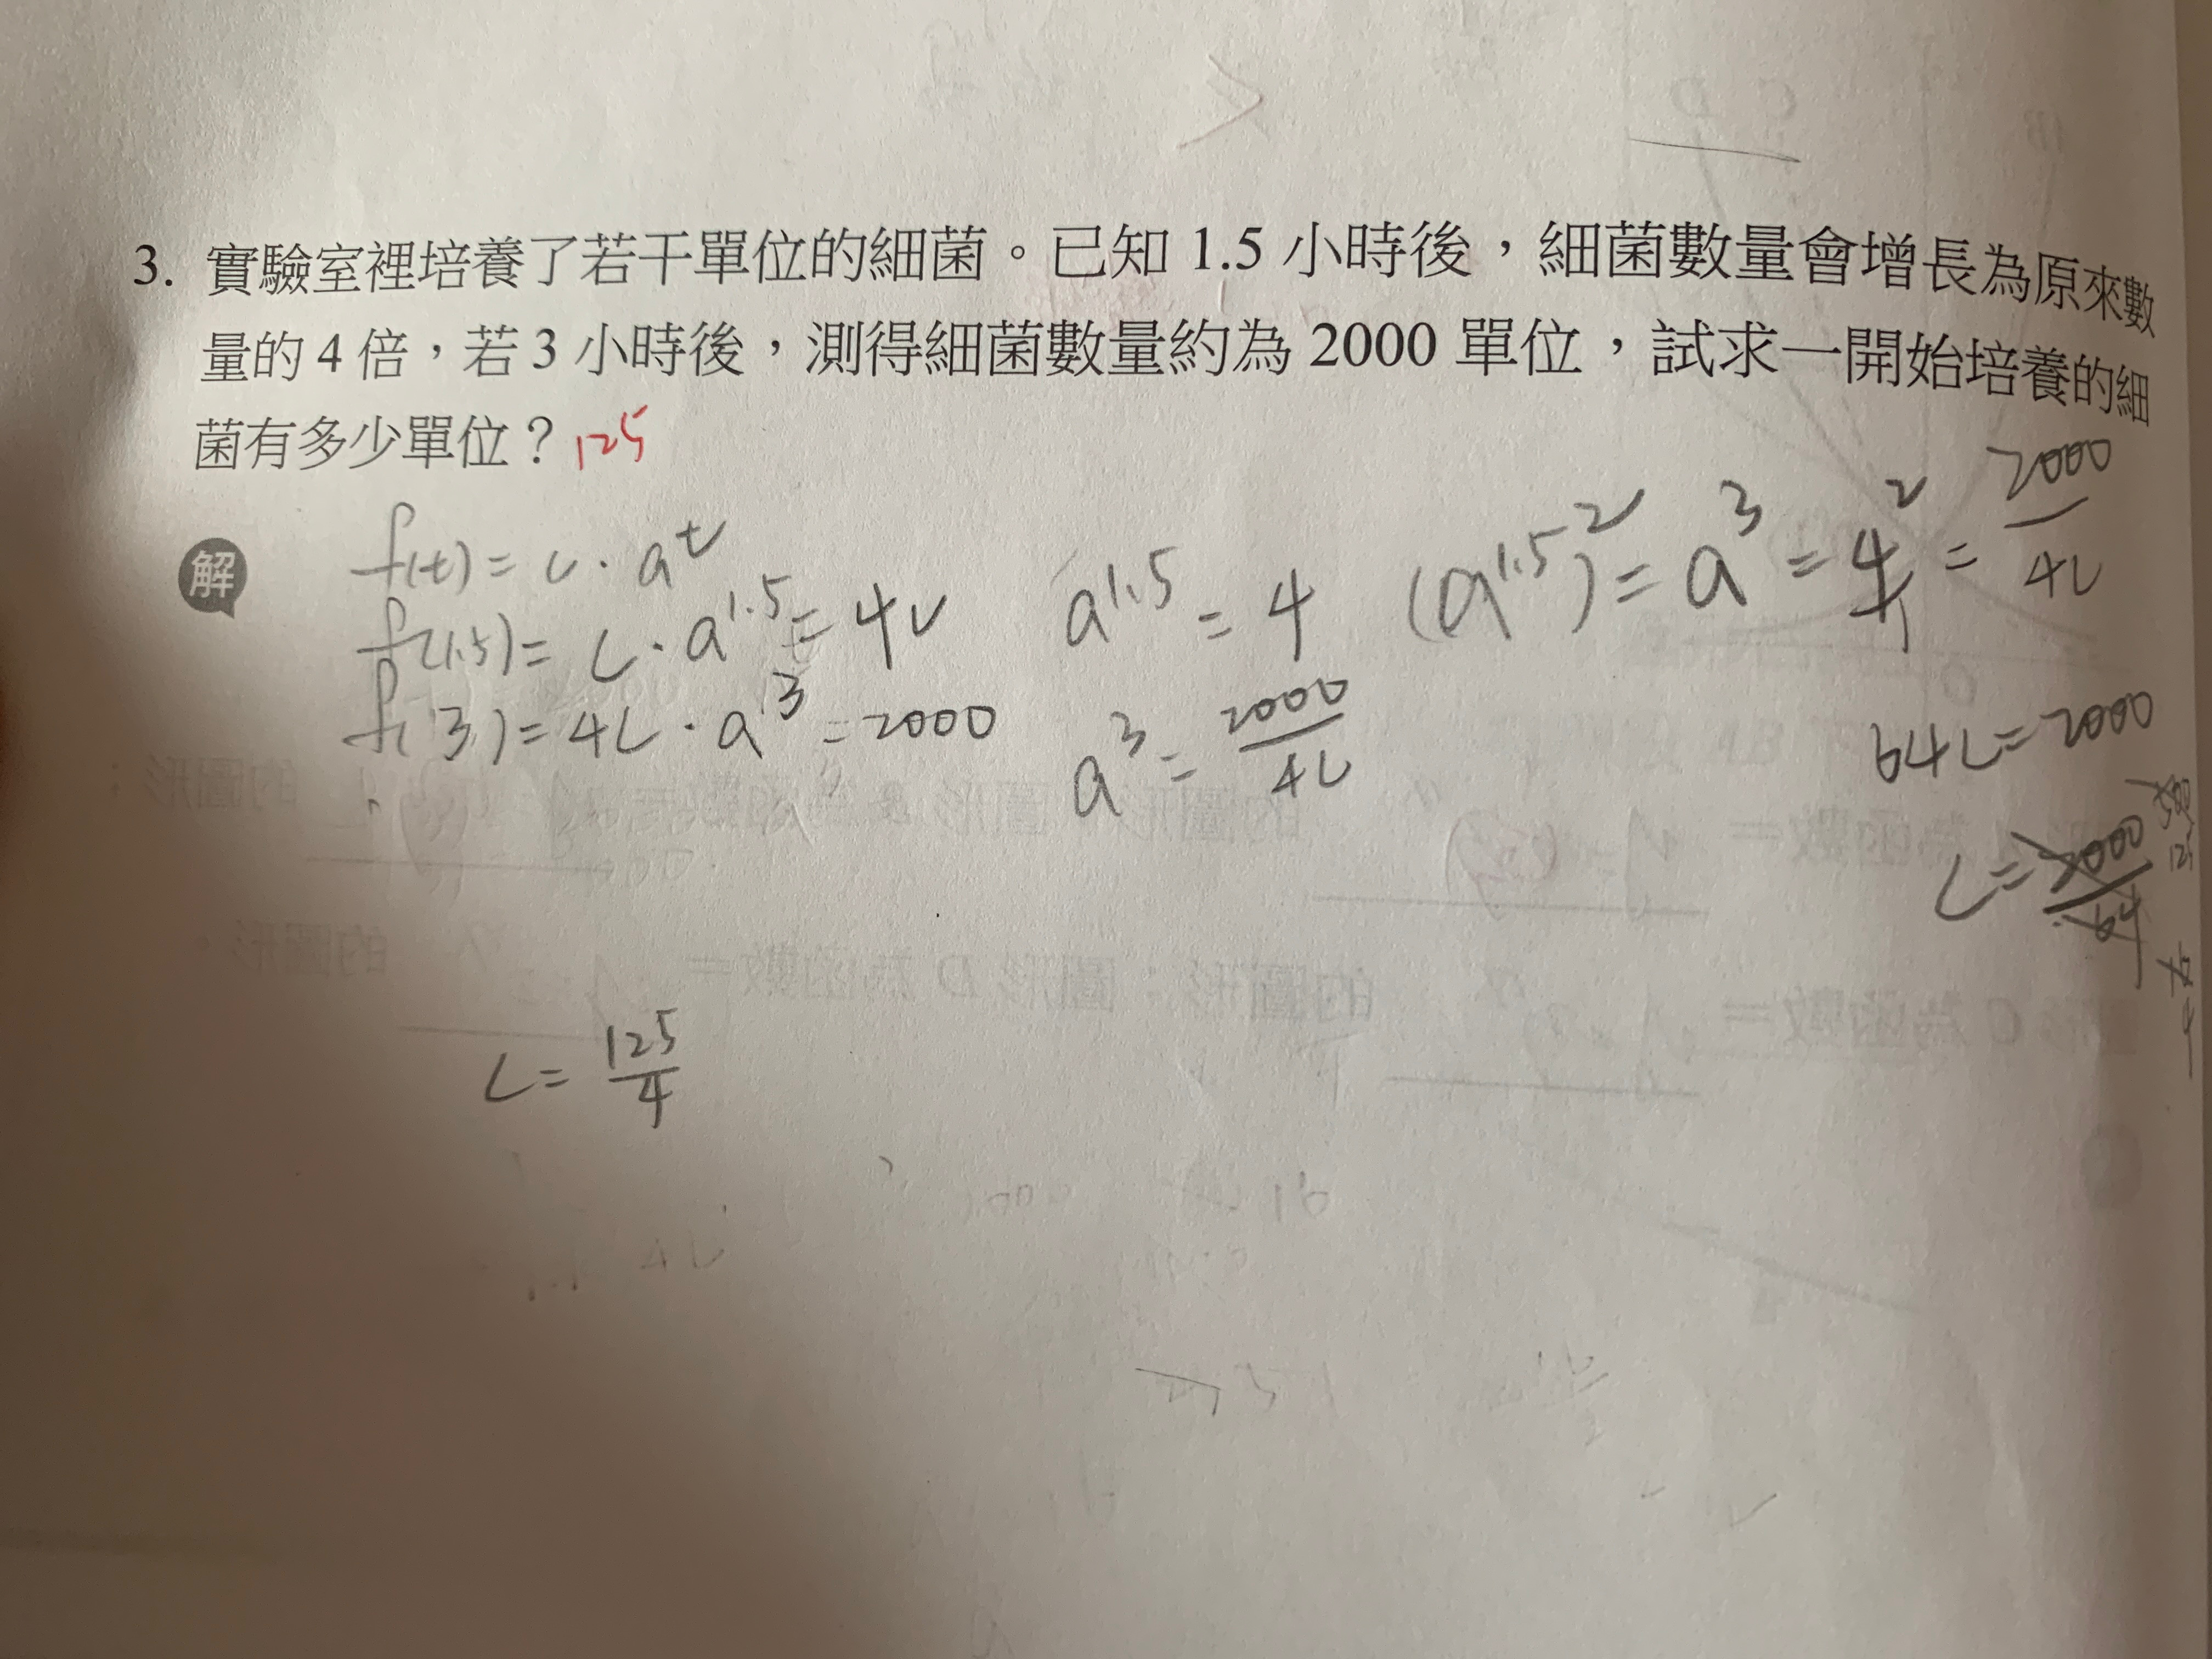 3. 實驗室裡培養了若干單位的細菌。已知 1.5 小時後，細菌數量會增長為原來數
量的 4 倍，若 3 小時後，測得細菌數量約為 2000 單位，試求一開始培養的細
菌有多少單位？125
解
f(t) = c · a^t
f(1.5) = c · a^1.5 = 4c
f(3) = 4c · a^3 = 2000
a^1.5 = 4
a^3 = 2000/4c
(a^1.5)^2 = a^3 = 4^2 = 2000/4c
64c = 2000
c = 2000/64
c = 125/4